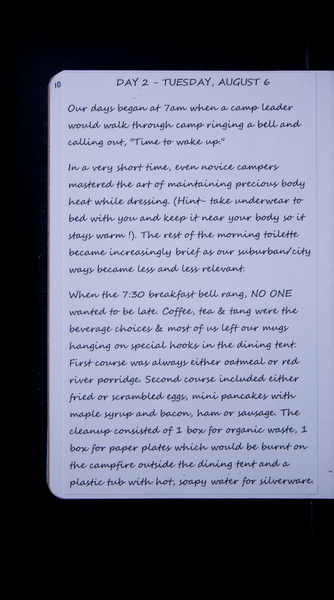 10
DAY 2 - TUESDAY, AUGUST 6
Our days began at 7am when a camp leader
would walk through camp ringing a bell and
calling out, "Time to wake up."
In a very short time, even novice campers
mastered the art of maintaining precious body
heat while dressing. (Hint- take underwear to
bed with you and keep it near your body so it
stays warm !). The rest of the morning toilette
became increasingly brief as our suburban/city
ways became less and less relevant.
When the 7:30 breakfast bell rang, NO ONE
wanted to be late. Coffee, tea & tang were the
beverage choices & most of us left our mugs
hanging on special hooks in the dining tent.
First course was always either oatmeal or red
river porridge. Second course included either
fried or scrambled eggs, mini pancakes with
maple syrup and bacon, ham or sausage. The
cleanup consisted of 1 box for organic waste, 1
box for paper plates which would be burnt on
the campfire outside the dining tent and a
plastic tub with hot, soapy water for silverware.